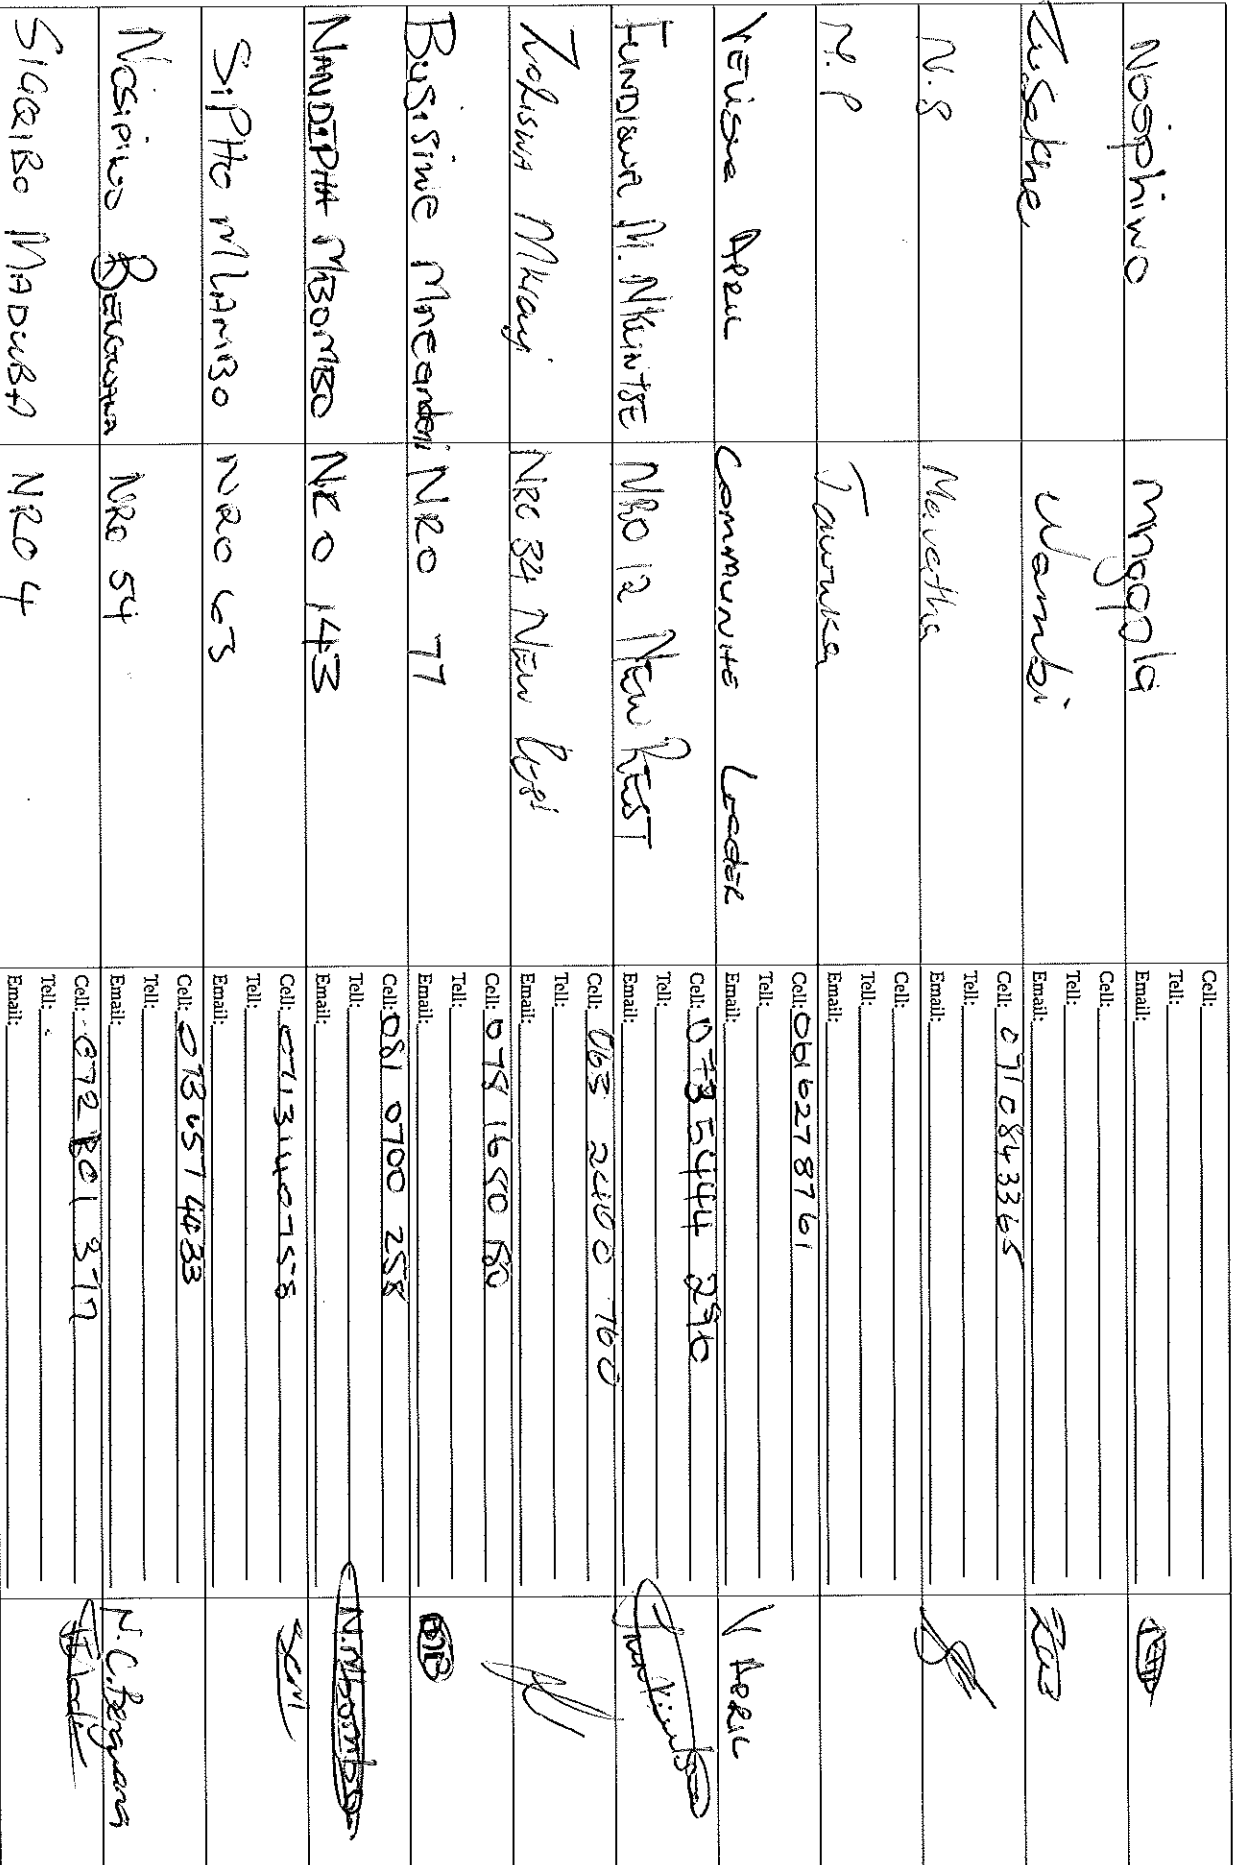 Nosiphiwo Mngqola
Cell:
Tell:
Email:
Zusakhe Wambi
Cell:
Tell:
Email:
N.S Mavatha
Cell: 0710843365
Tell:
Email:
N.P
Cell:
Tell:
Email:
Veliswa April Communite Leader
Cell: 0616278761
Tell:
Email:
V APRIL
FUNDISWA M. NKUNTSE NRO 12 NEW REST
Cell: 073 5444 296
Tell:
Email:
ZOLISWA Mkrayi NRO 34 NEW Rest
Cell: 063 2400 760
Tell:
Email:
Busisiwe Mncandeni NRO 77
Cell: 078 1650 150
Tell:
Email:
NANDIPHA MBOMBO NRO 143
Cell: 081 0700 258
Tell:
Email:
N.Mbombo
SIPHO MLAMBO NRO 63
Cell:
Tell:
Email:
NOSIPIWO BENGWANA NRO 54
Cell: 073 657 4433
Tell:
Email:
N.C.Bengwana
SIGQIBO MADUBA NRO 4
Cell:
Tell:
Email: